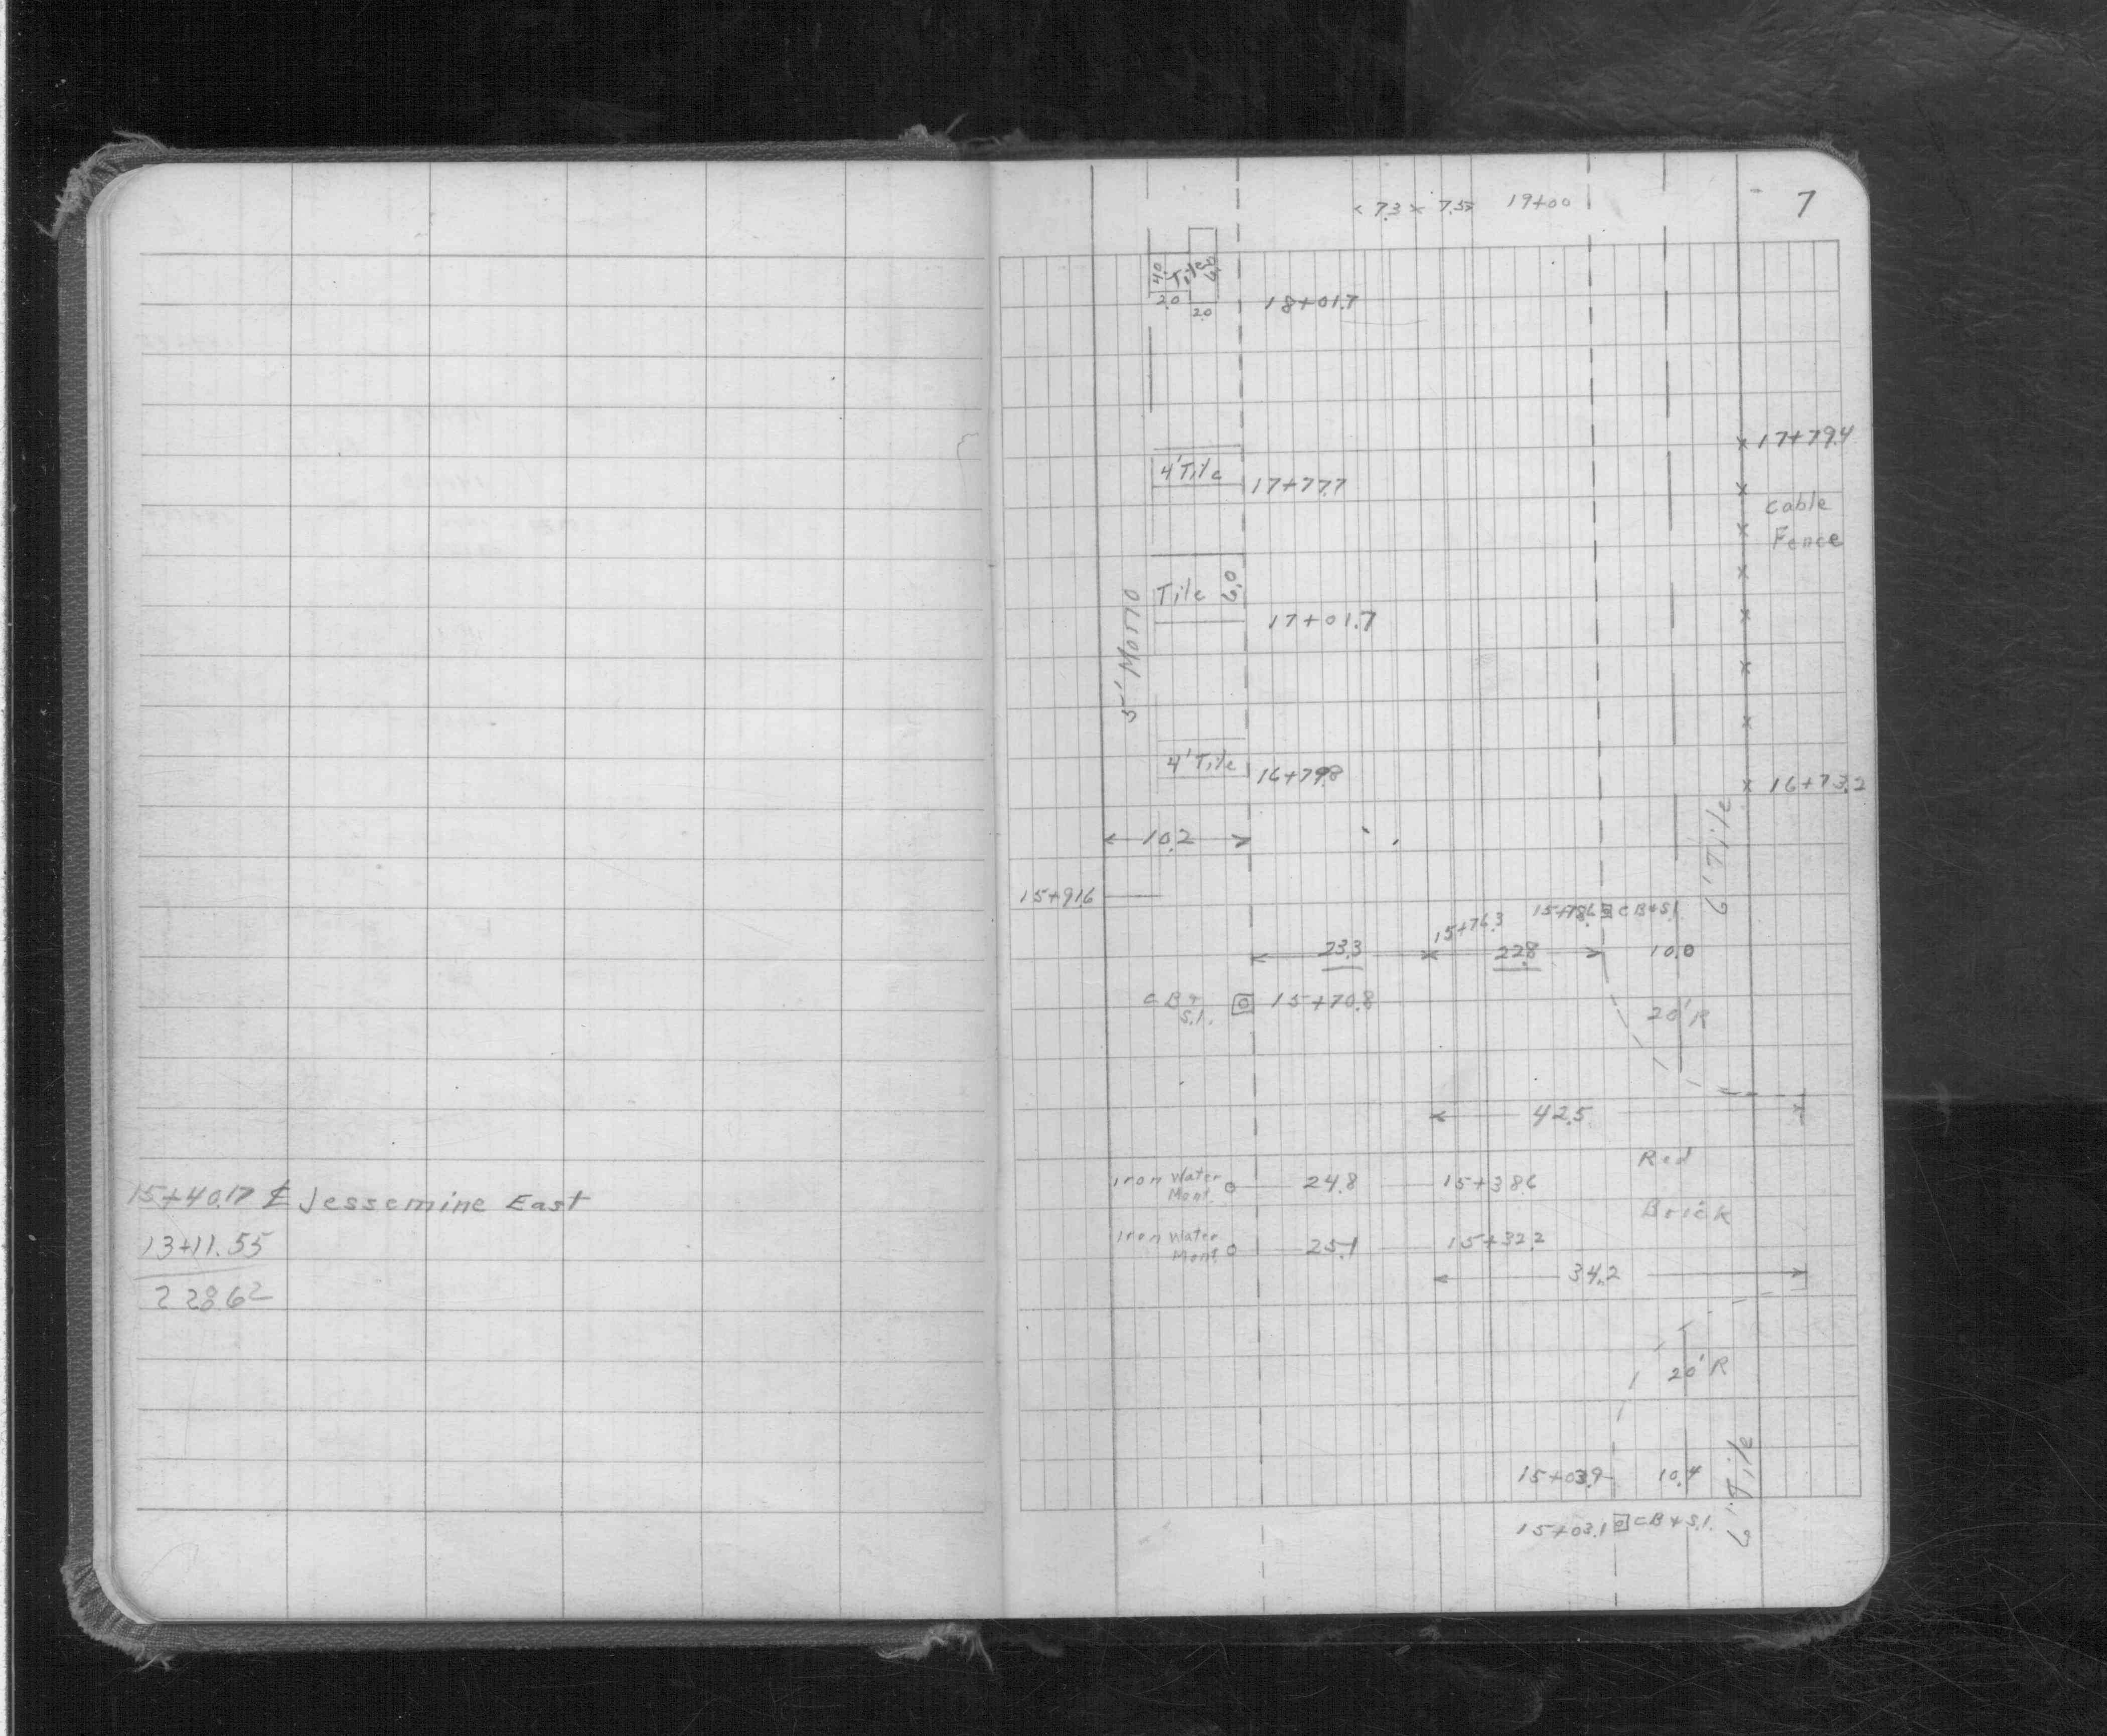 15+40.17 ℄ Jessemine East
13+11.55
228.62
7
7.3 7.5 19+00
4.0 Tile 6.0
2.0
2.0
18+01.7
17+79.4
4' Tile 17+77.7
Cable
Fence
Tile 6.0
17+01.7
5' Mono
4' Tile 16+79.8
16+73.2
6' Tile
10.2
15+91.6
15+78.6 CB+S.I.
15+76.3
23.3 22.8 10.0
CB+
S.I. 15+70.8
20' R
42.5
Red
Iron Water
Mont. 24.8 15+38.6
Brick
Iron Water
Mont. 25.1 15+32.2
34.2
20' R
15+03.9 10.4
6' Tile
15+03.1 CB+S.I.